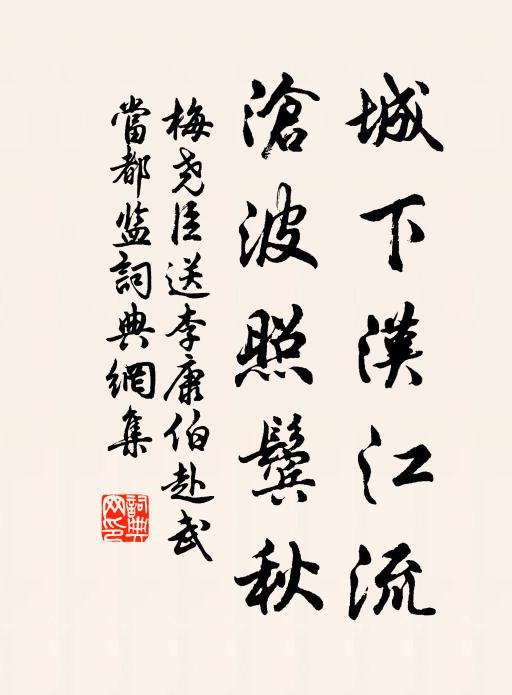 城下漢江流
滄波照鬢秋
梅尧臣送李康伯赴武
當都监詞典網集
詞典网印